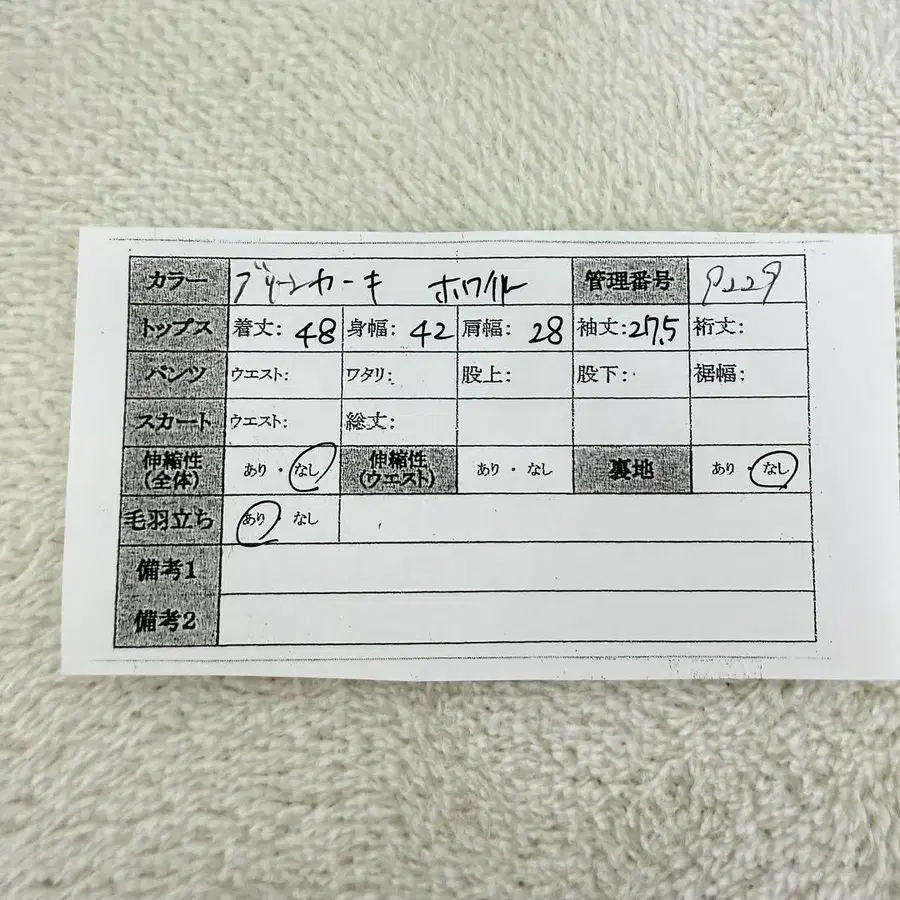 カラー グリーンカーキ ホワイト 管理番号 9229
トップス 着丈: 48 身幅: 42 肩幅: 28 袖丈: 27.5 裄丈:
パンツ ウエスト: ワタリ: 股上: 股下: 裾幅:
スカート ウエスト: 総丈:
伸縮性(全体) あり・なし 伸縮性(ウエスト) あり・なし 裏地 あり・なし
毛羽立ち あり・なし
備考1
備考2